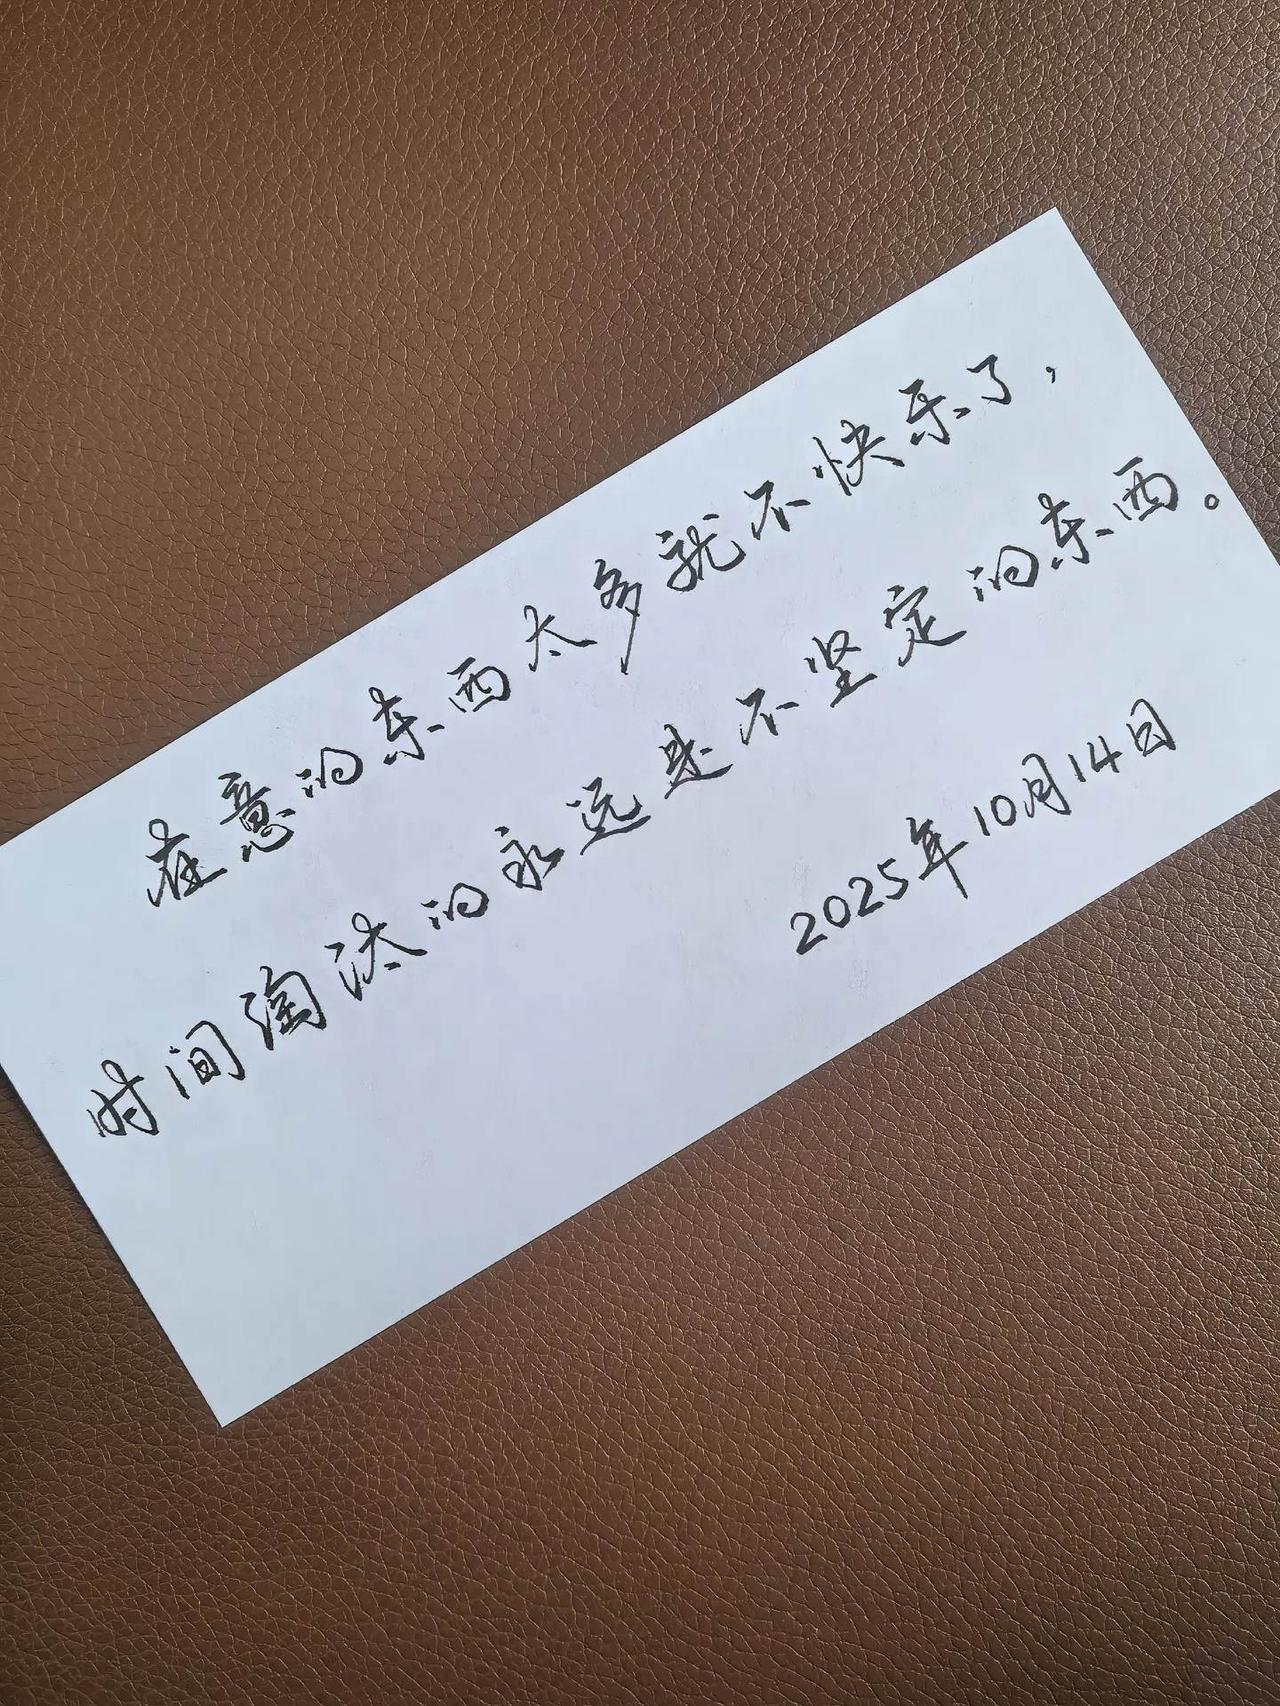 在意的东西太多就不快乐了，
时间淘汰的永远是不坚定的东西。
2025年10月14日